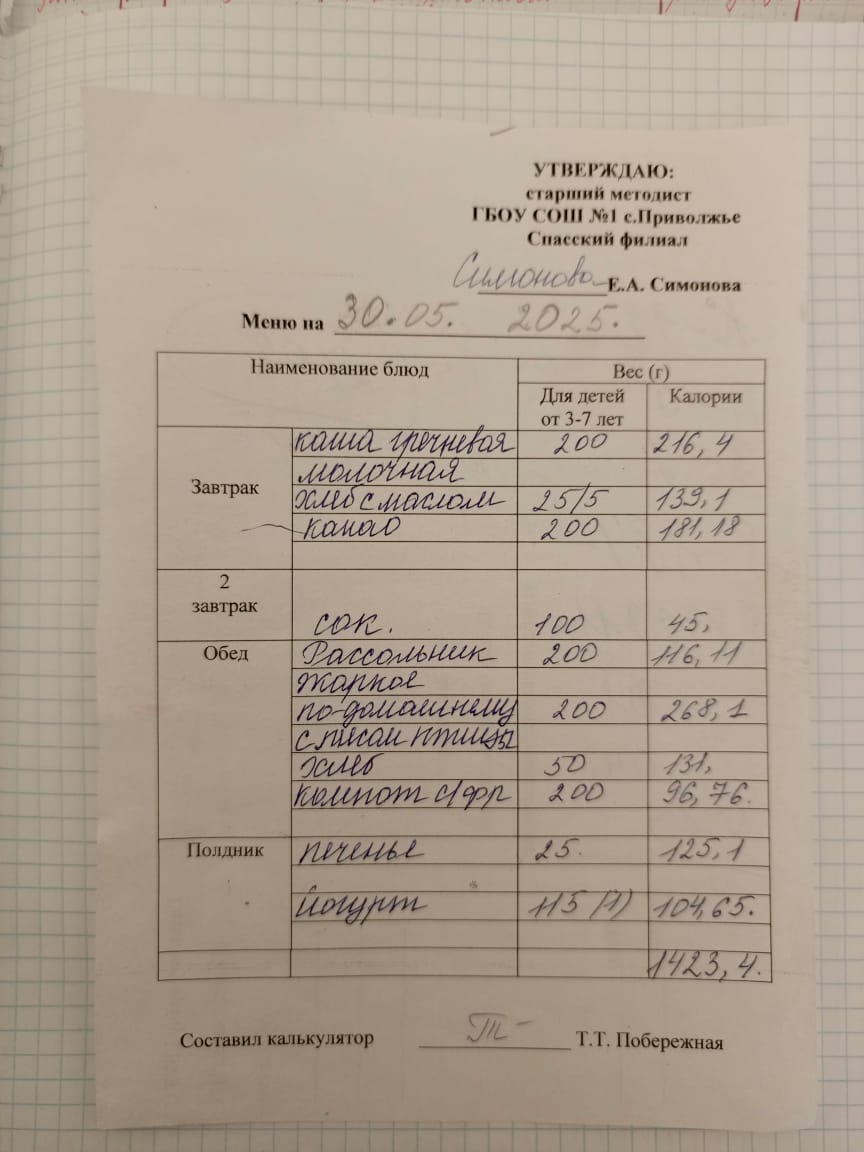 УТВЕРЖДАЮ:
старший методист
ГБОУ СОШ №1 с.Приволжье
Спасский филиал
Симонова Е.А. Симонова
Меню на 30.05. 2025.
Наименование блюд Вес (г)
Для детей от 3-7 лет Калории
Завтрак
каша гречневая 200 216,4
молочная
хлеб с маслом 25/5 139,1
какао 200 181,18
2 завтрак
сок. 100 45,
Обед Рассольник 200 116,11
Жаркое
по-домашнему 200 268,1
с мясом птицы
хлеб 50 131,
компот с/фр 200 96,76.
Полдник печенье 25. 125,1
йогурт 115 (1) 104,65.
1423,4.
Составил калькулятор Т.Т. Побережная